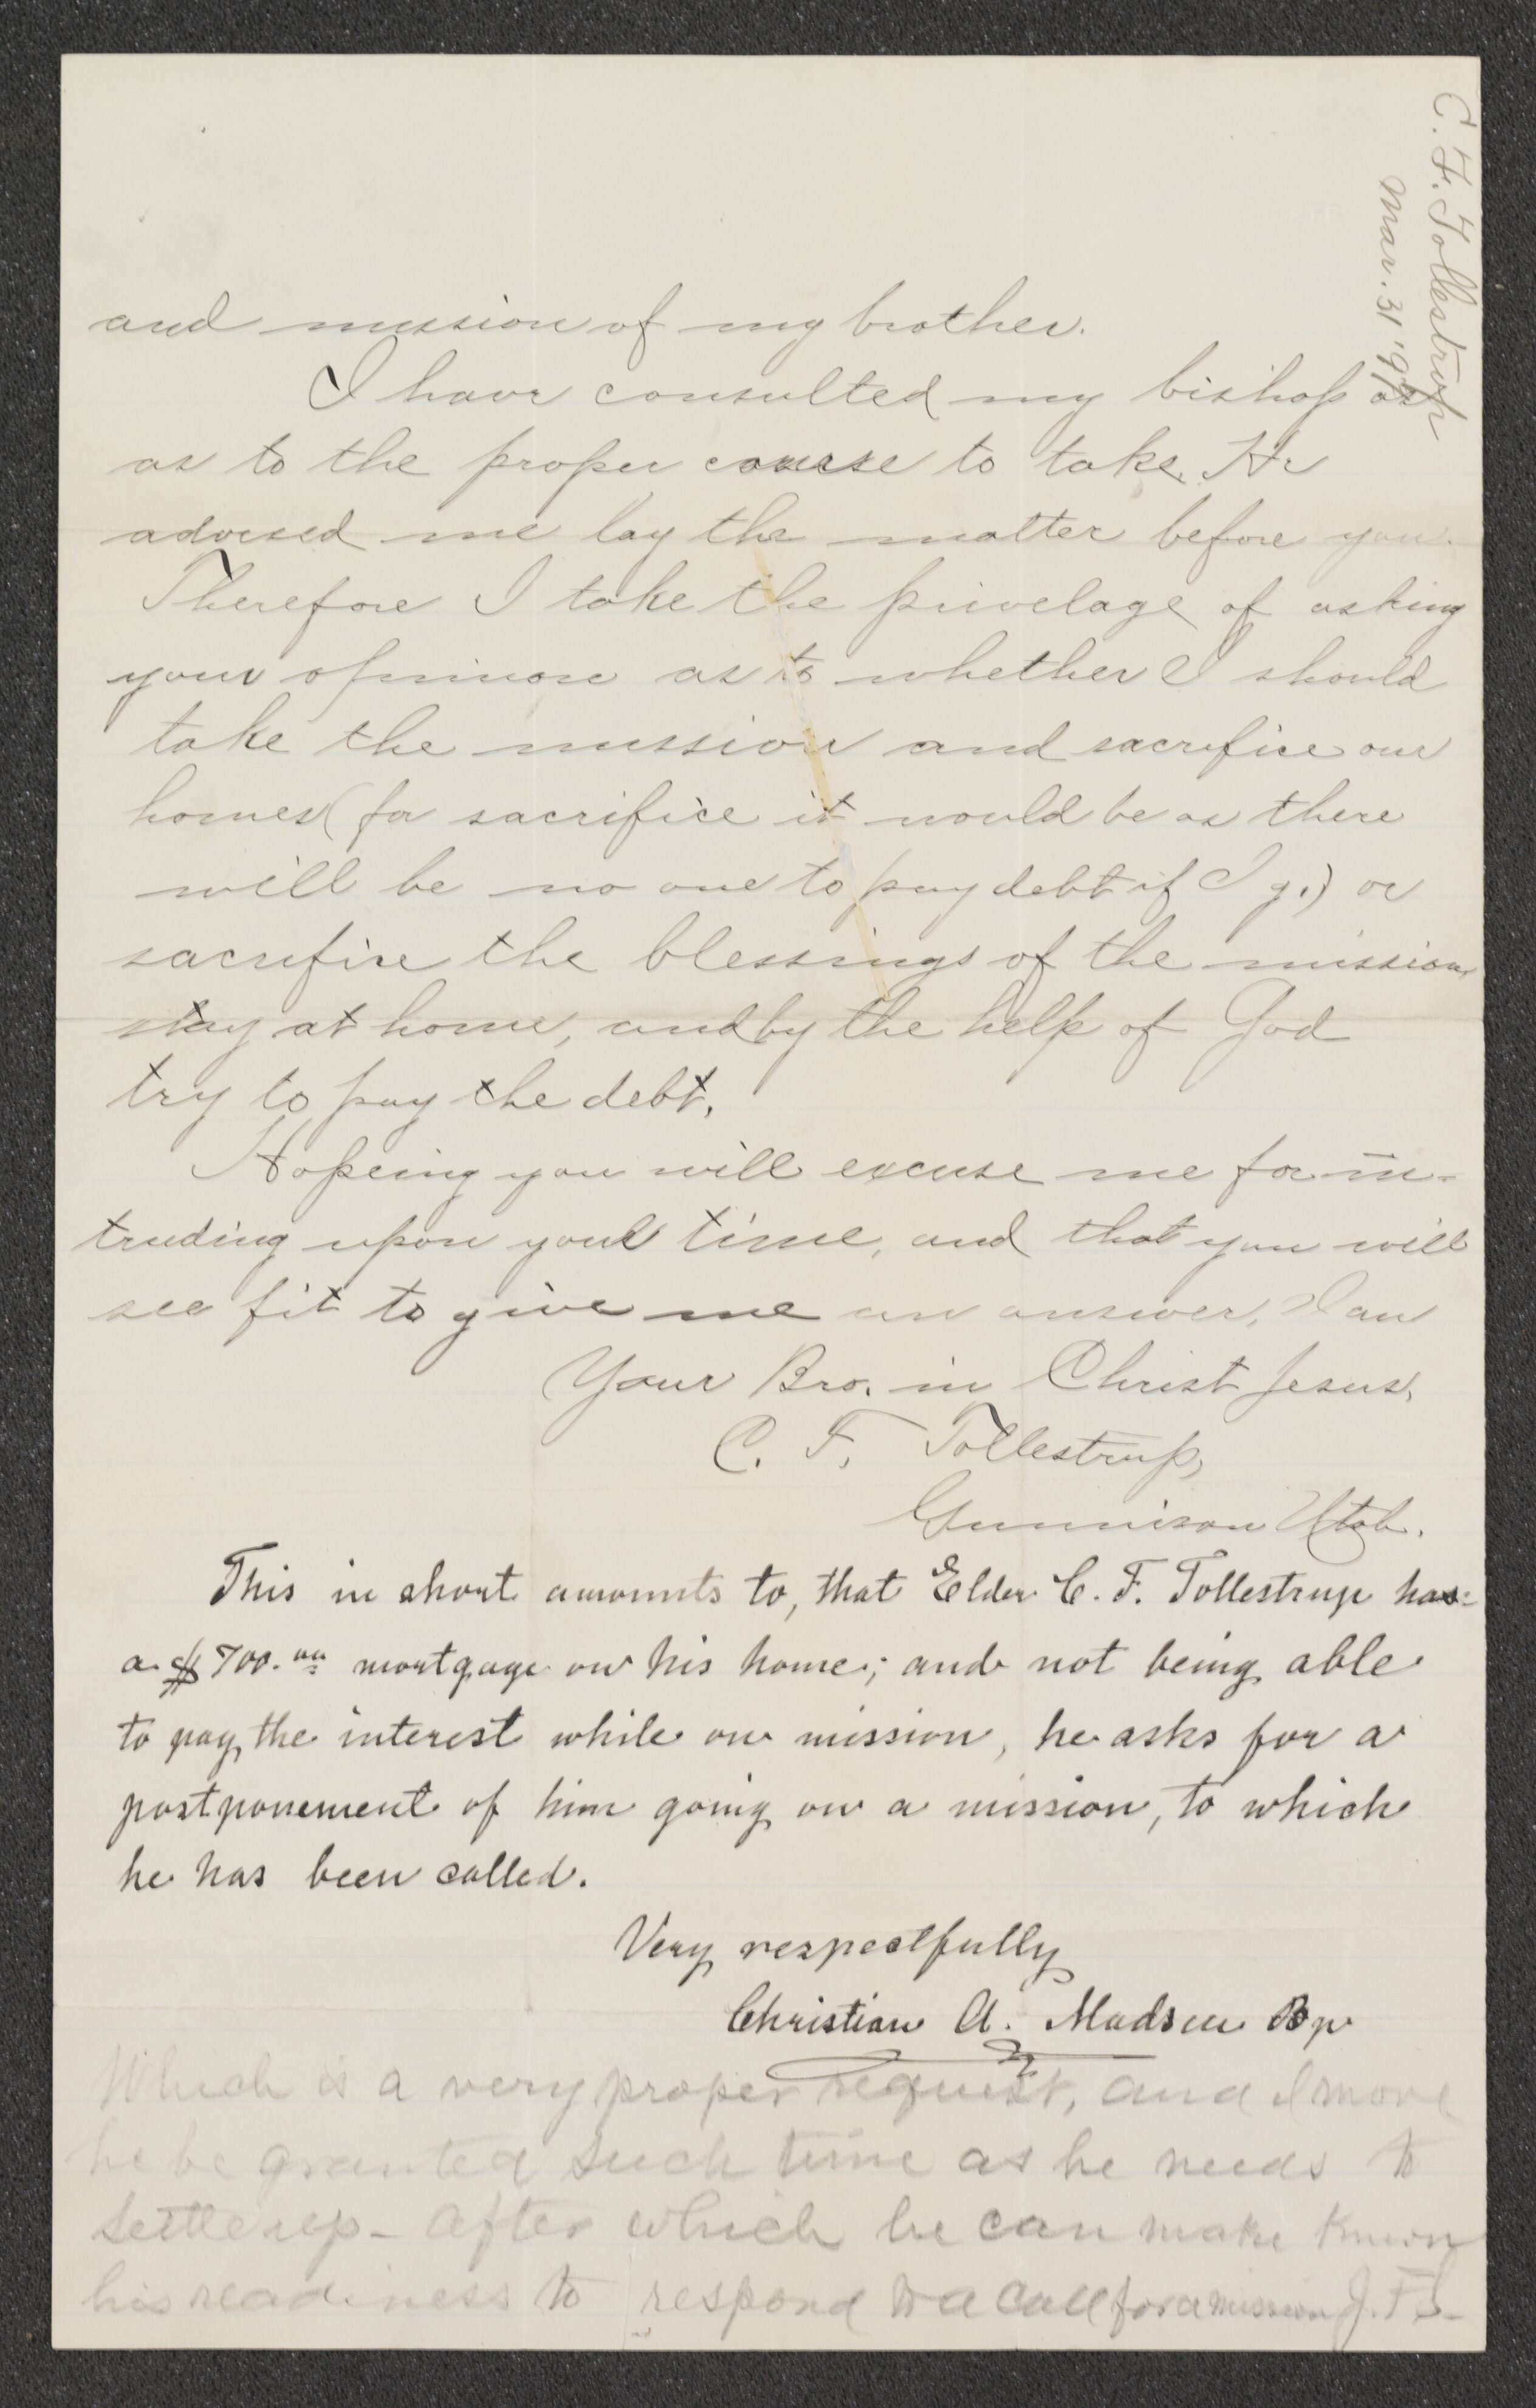 C. F. Tollestrop
Mar. 31 '97
and mission of my brother.
I have consulted my bishop as
as to the proper course to take. He
advised me lay the matter before you.
Therefore I take the privelage of asking
your opinion as to whether I should
take the mission and sacrifice our
homes (for sacrifice it would be as there
will be no one to pay debt if I g.) or
sacrifice the blessings of the mission,
stay at home, and by the help of God
try to pay the debt.
Hopeing you will excuse me for in-
truding upon your time, and that you will
see fit to give me an answer, I am
Your Bro. in Christ Jesus,
C. F. Tollestrup,
Gunnison Utah.
This in short amounts to, that Elder C. F. Tollestrup has
a $700.00 mortgage on his home; and not being able
to pay the interest while on mission, he asks for a
postponement of him going on a mission, to which
he has been called.
Very respectfully
Christian A. Madsen Bp
Which is a very proper request, and I move
he be granted such time as he needs to
settle up - after which he can make known
his readiness to respond to a call for a mission J. F. S.